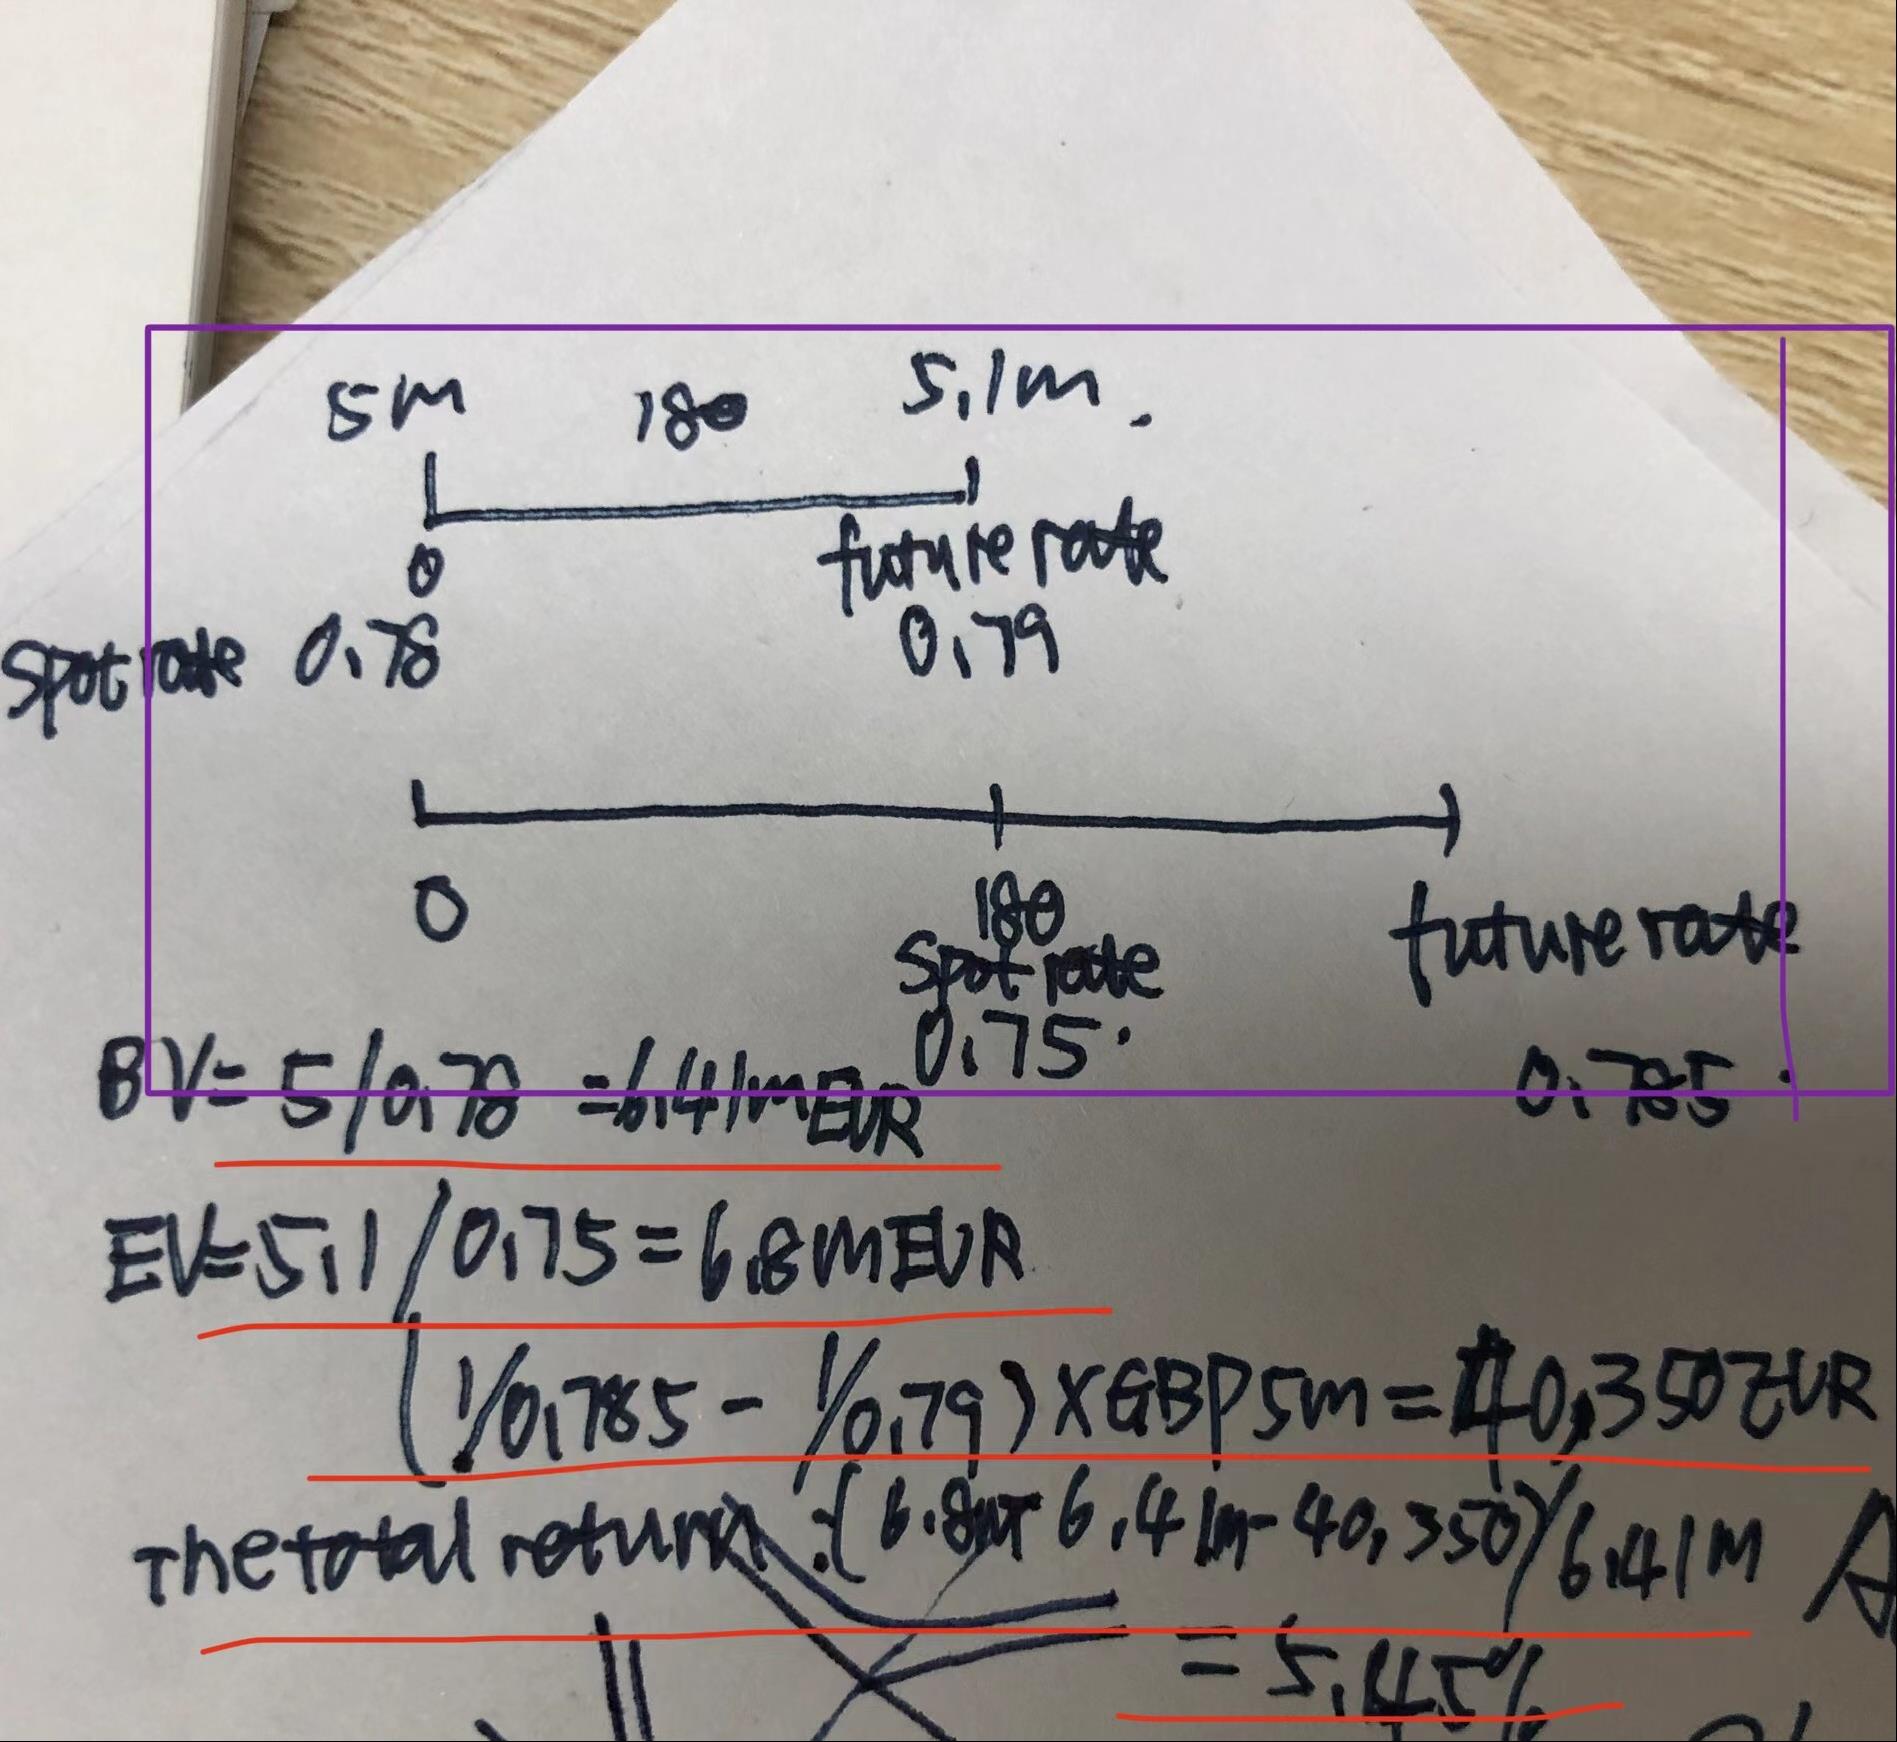 5m 180 5.1m.
0 future rate
Spot rate 0.78 0.79
0 180 future rate
Spot rate
0.75. 0.785
BV= 5/0.78 =6.41mEUR
EV=5.1/0.75=6.8mEUR
(1/0.785 - 1/0.79)×GBP5m=40,350EUR
The total return:(6.8m-6.41m-40,350)/6.41m A
= 5.45%